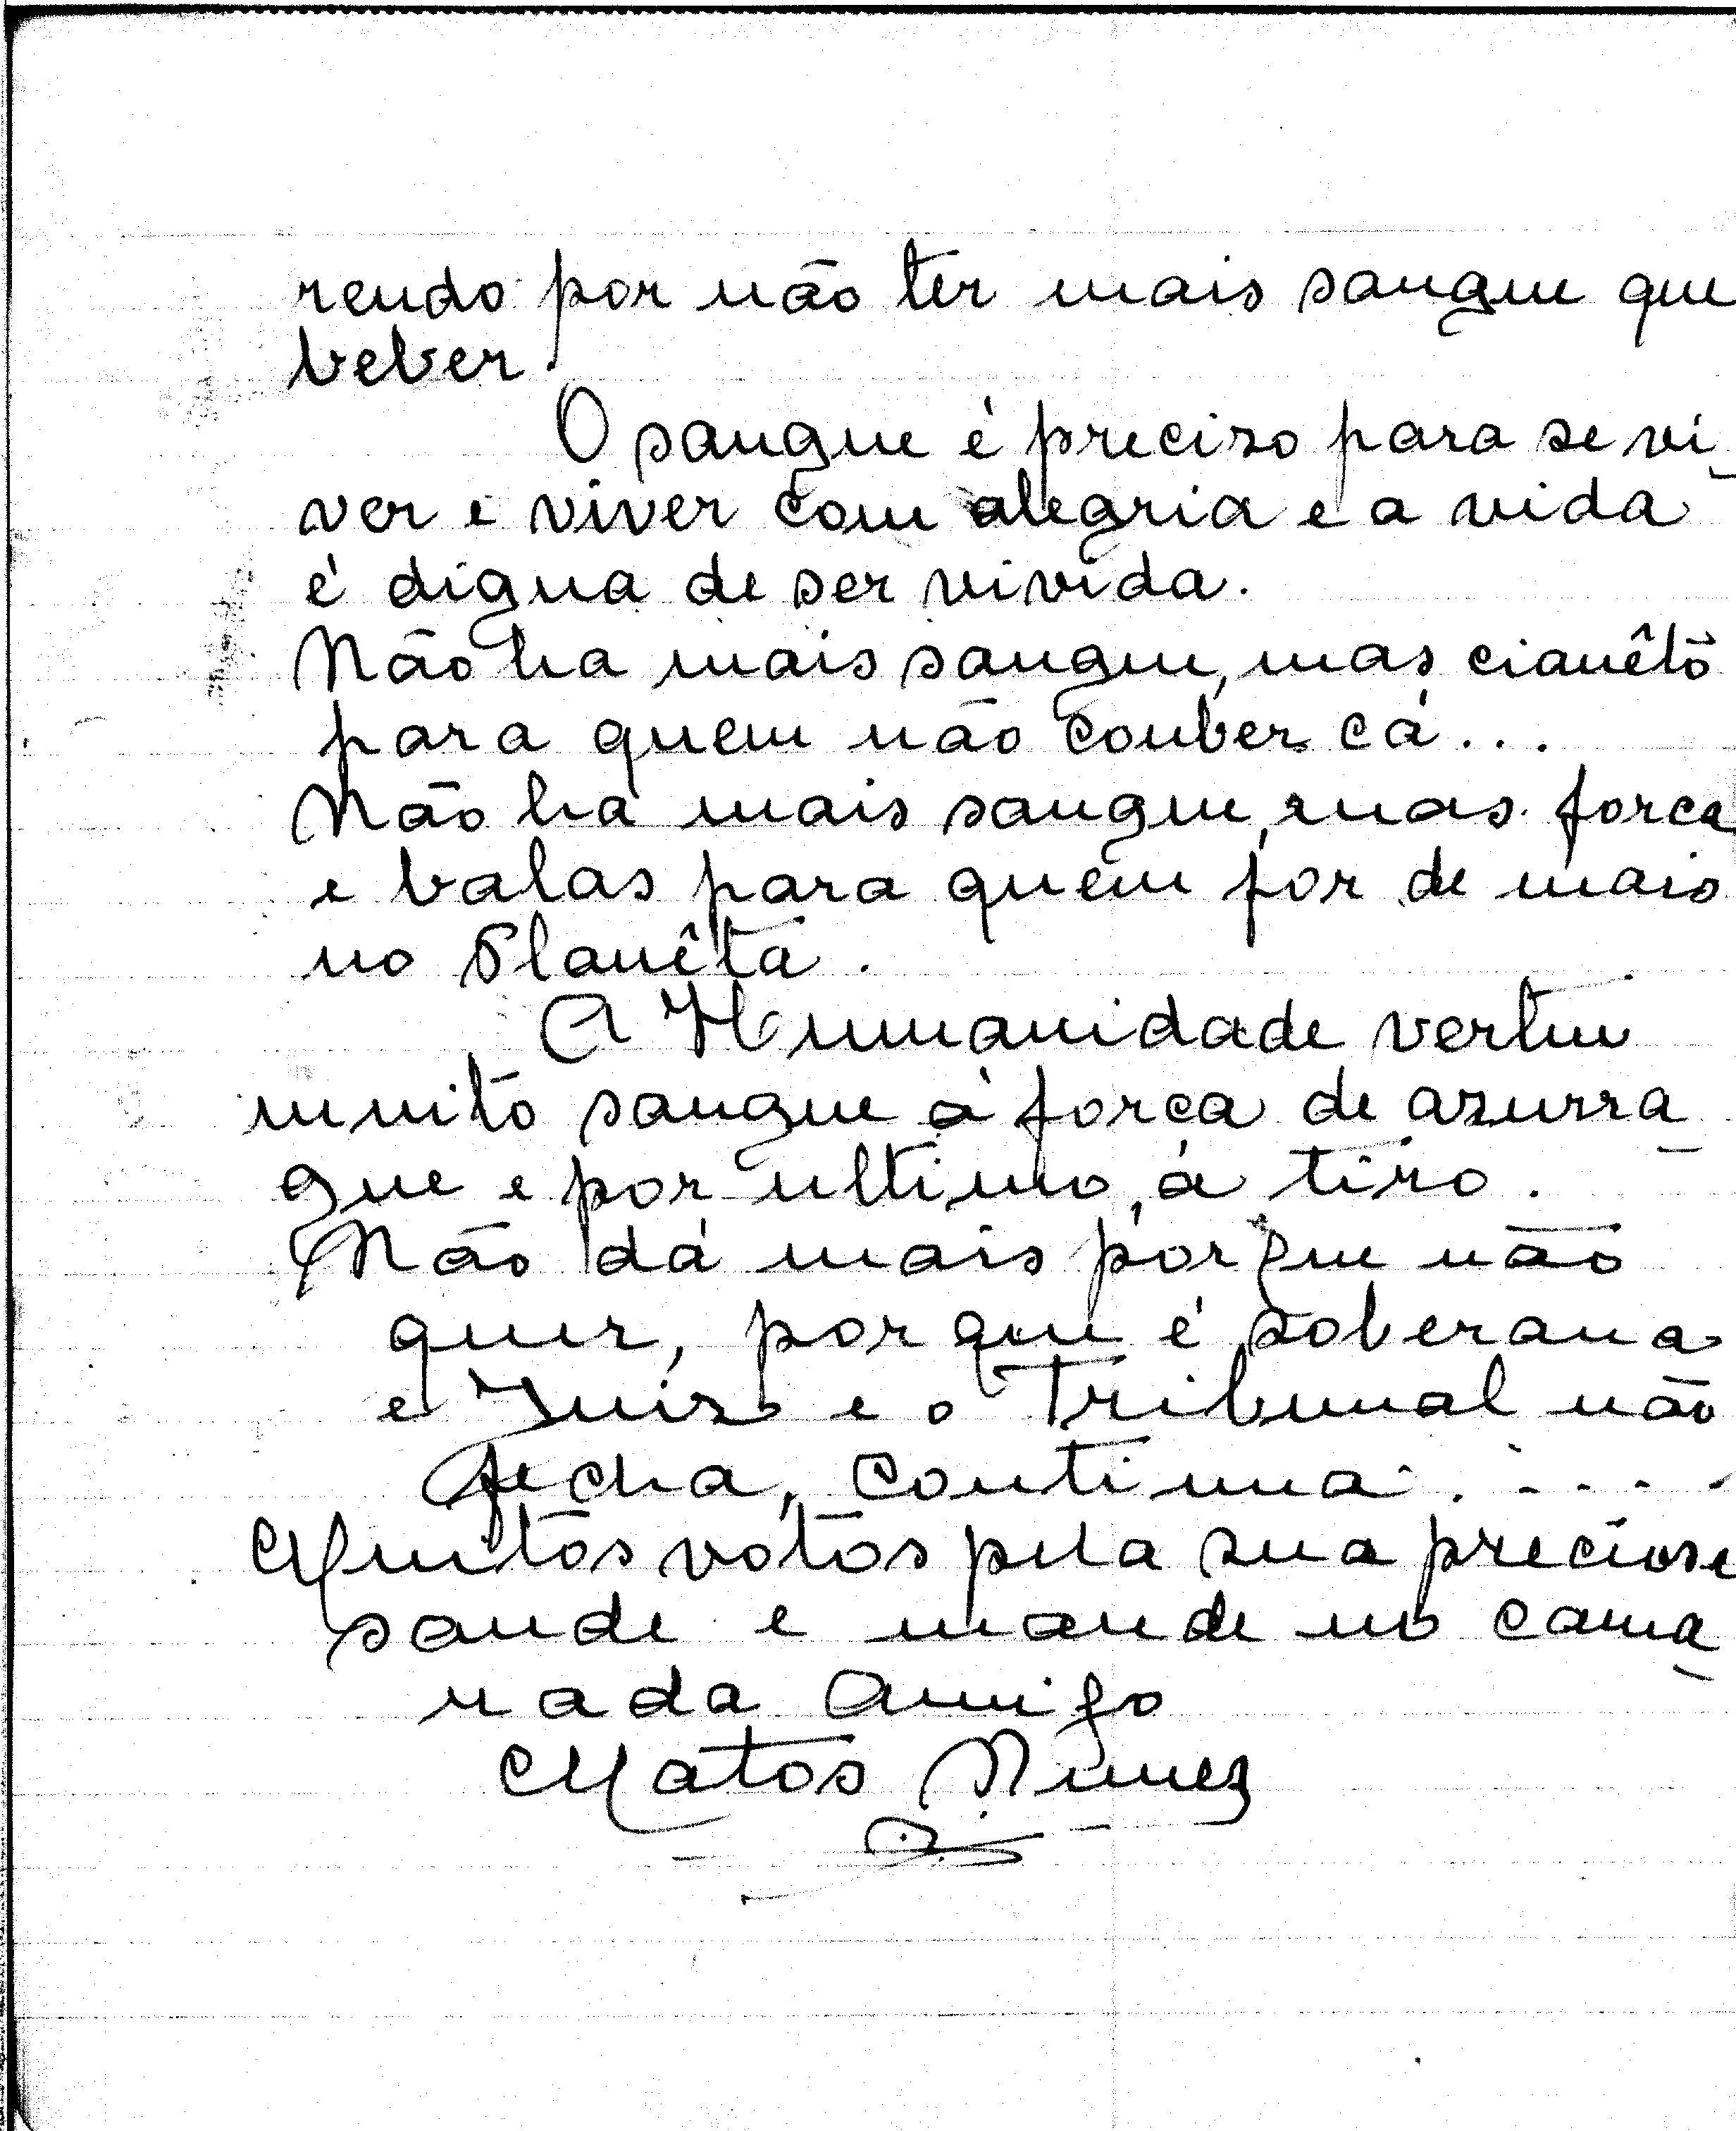 rendo por não ter mais sangue que
beber.
O sangue é preciso para se vi-
ver e viver com alegria e a vida
é digna de ser vivida.
Não ha mais sangue, mas cianêto
para quem não couber cá...
Não ha mais sangue, mas forca
e balas para quem for de mais
no Planêta.
A Humanidade verteu
muito sangue á força de azurra-
gue e por ultimo, á tiro.
Não dá mais porque não
quer, porque é soberana
e Juiz e o Tribunal não
fecha, continua.....
Muitos votos pela sua preciosa
saude e mande no cama-
rada Amigo
Matos Nunes